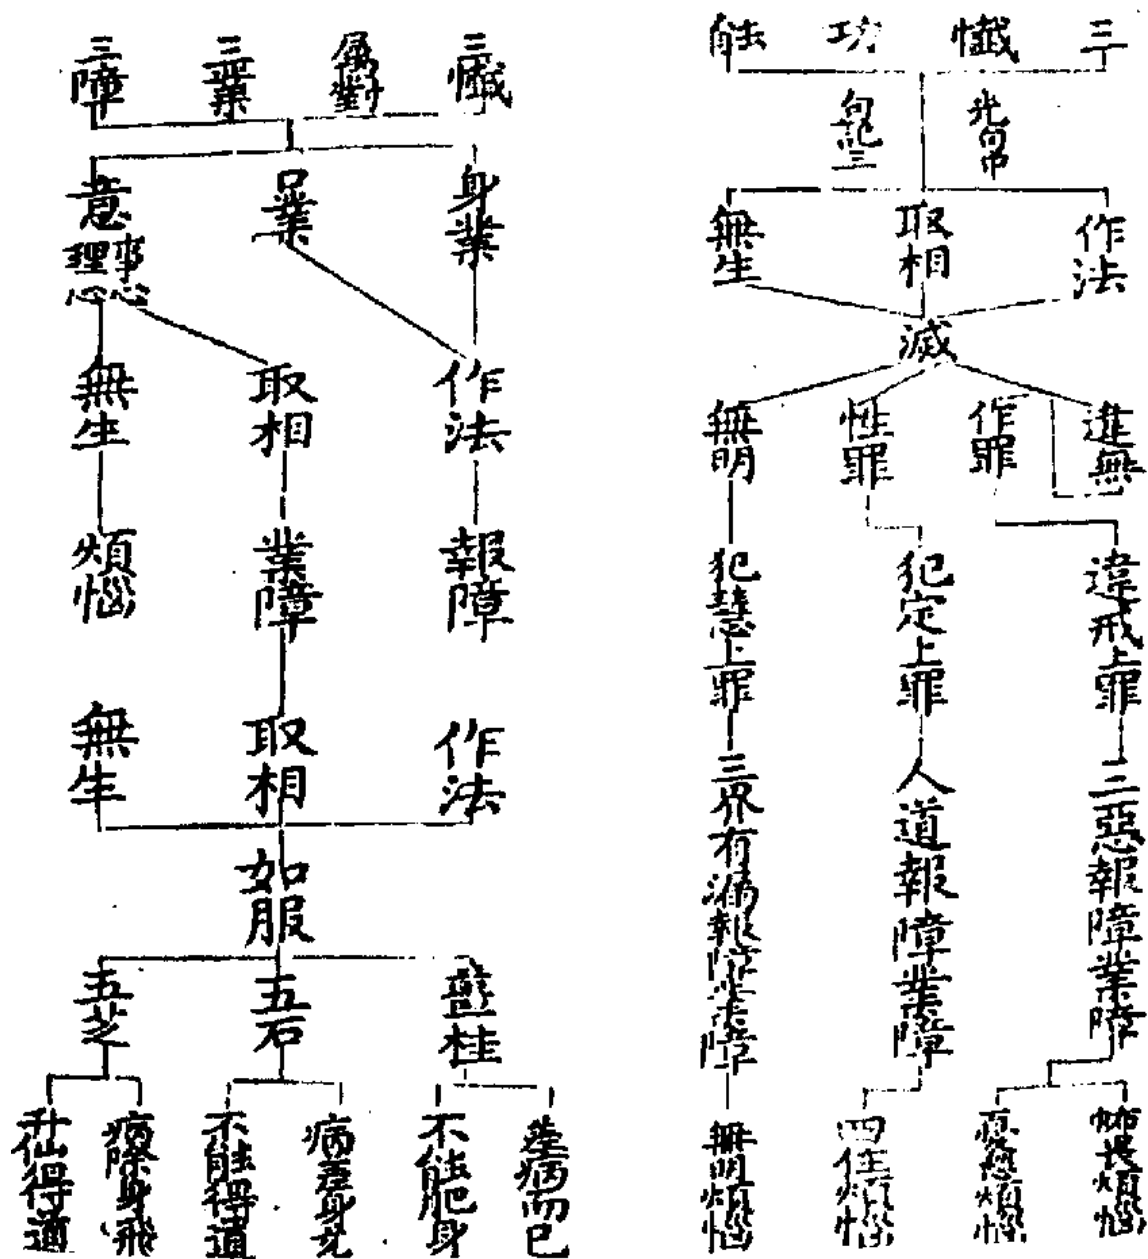 三懺功能
作法
取相
無生
滅
遮無
作罪
性罪
無明
違戒上罪
犯定上罪
犯慧上罪
三惡報障業障
人道報障業障
三界有漏報障業障
怖畏煩惱
煩惱
四住煩惱
無明煩惱
三懺
屬對
三業
三障
身業
口業
意
事
理
作法
取相
無生
報障
業障
煩惱
作法
取相
無生
如服
藍桂
五石
五芝
差病而已
不能肥身
病差身充
不能得道
病除身飛
升仙得道